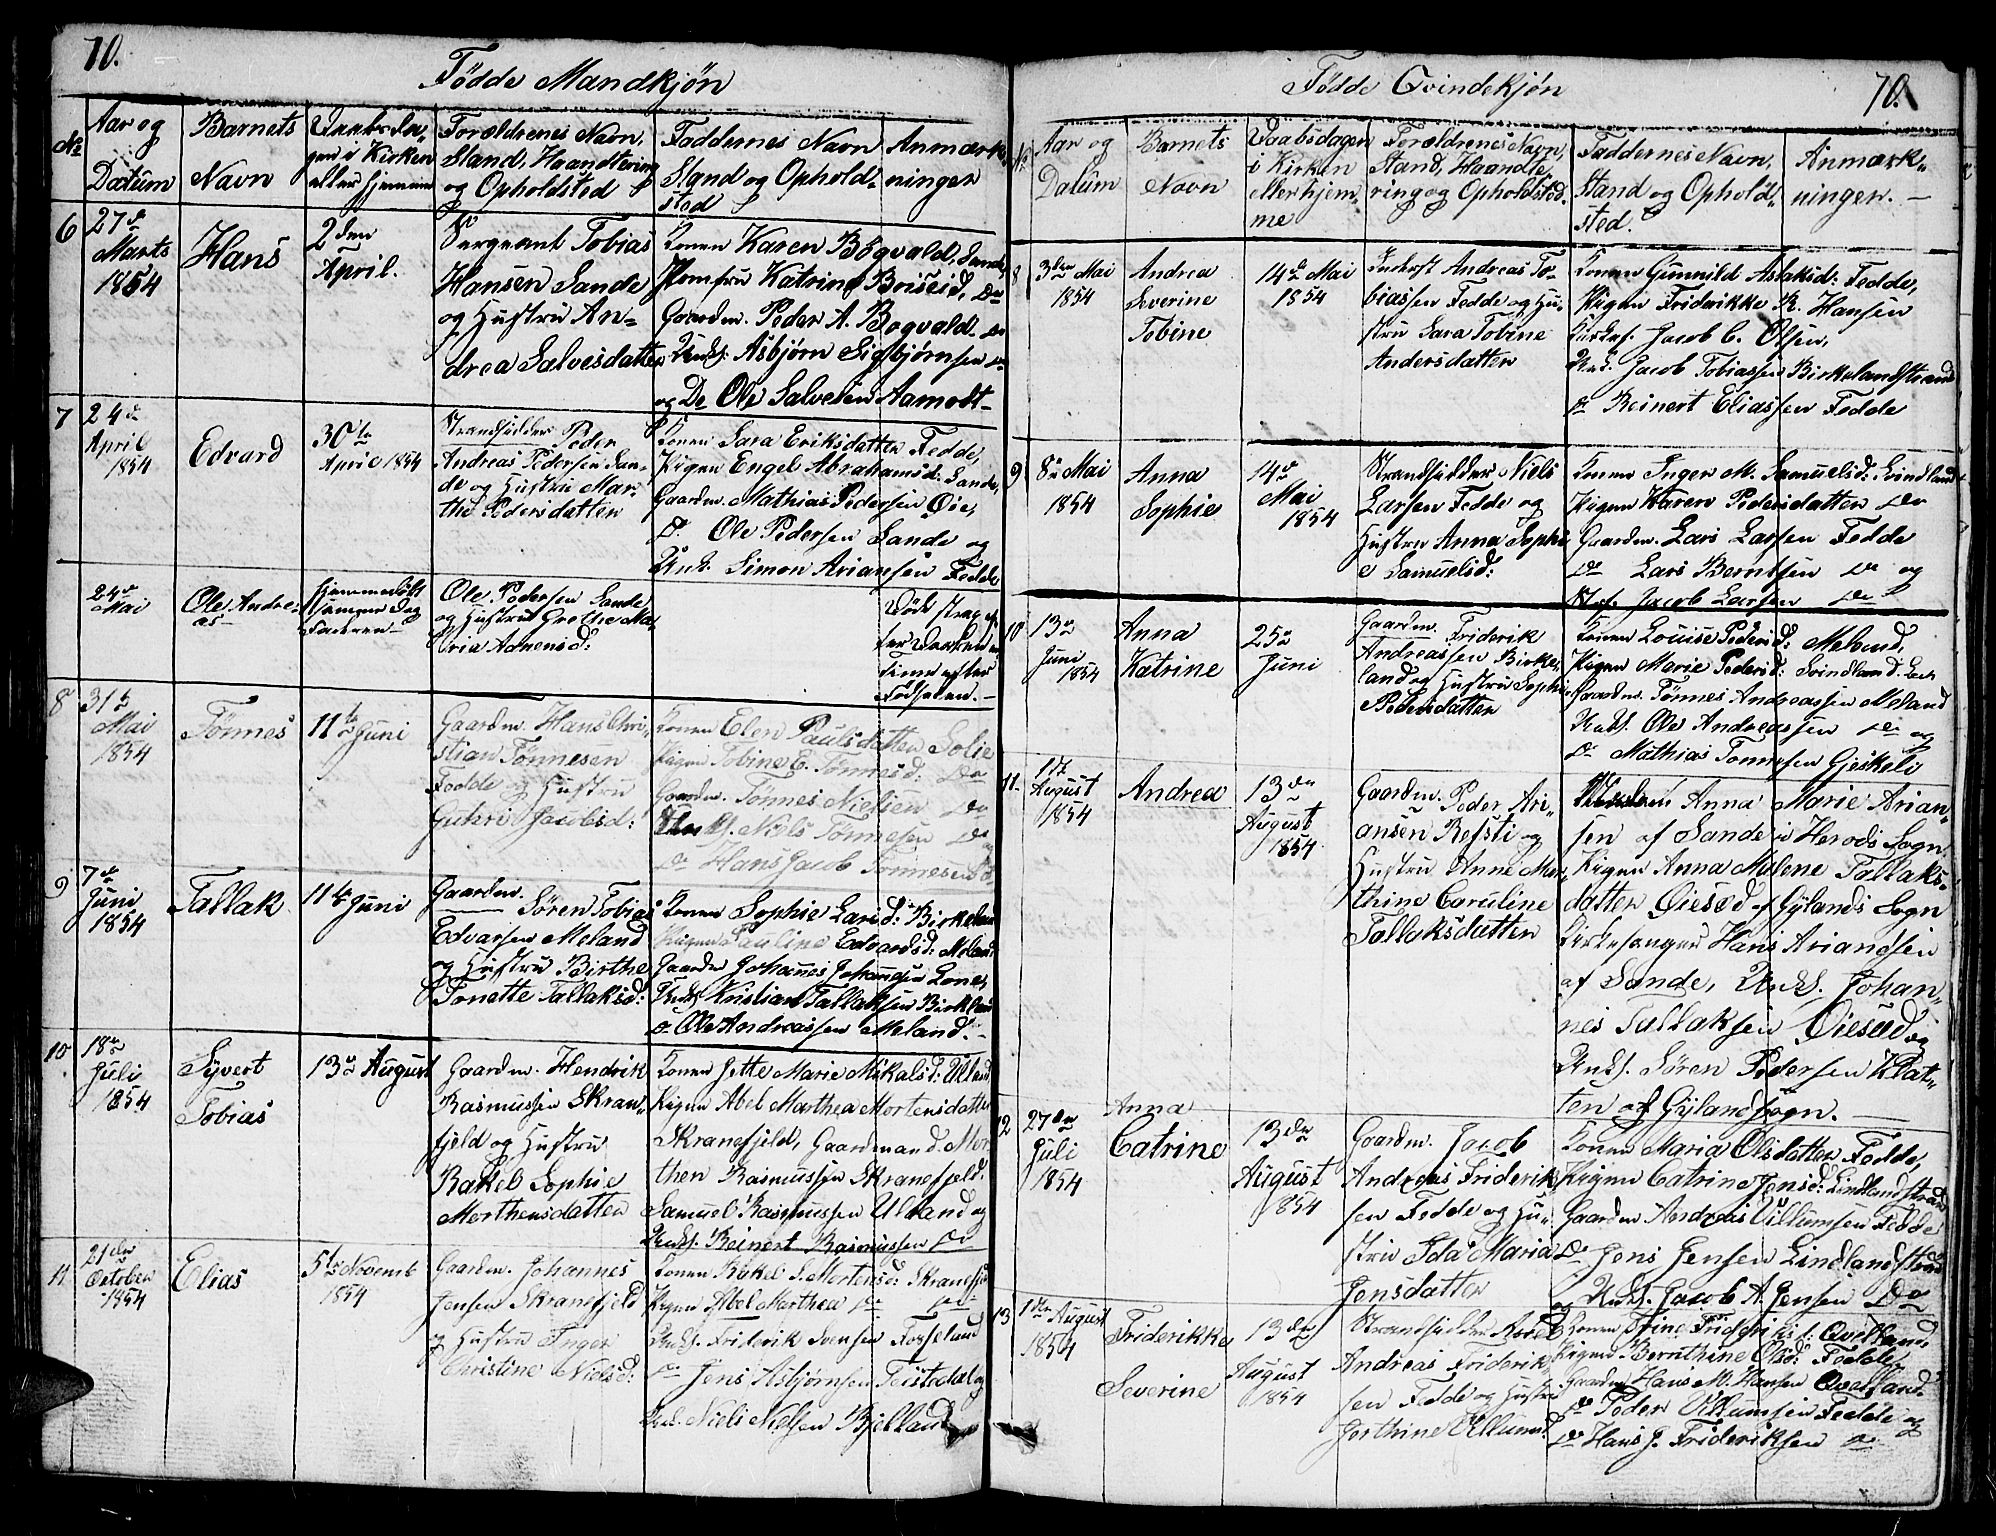 70.
Födde Mandkjøn
No
Aar og
Datum
Barnets
Navn
Daabsda-
gen i Kirken
eller hjemme
Forældrenes Navn,
Stand, Haandtering
og Opholdsted
Faddernes Navn
Stand og Ophold-
sted
Anmærk-
ninger
6
27de
Marts
1854
Hans
2den
April.
Sergeant Tobias
Hansen Sande
og Hustru An-
drea Salvesdatter
Konen Karen Bøgvald, Sande,
Jomfru Katrine Brisesd. Do
Gaardm. Peder A. Bøgvald Do
Unks. Asbjørn Sigbjørnsen Do
og Do Ole Salvesen Aamodt-
7
24de
April
1854
Edvard
30te
April 1854
Strandsidder Peder
Andreas Pedersen San-
de og Hustru Mar-
the Pedersdatter
Konen Sara Eriksdatter Fedde,
Pigen Engel Abrahamsd: Sande,
Gaardm. Mathias Pedersen Øie,
Do. Ole Pedersen Sande og
Unk. Simon Ariansen Fedde
24de
Mai
Ole Andre-
as-
Hjemmedøbt
samme Dag
Faderen-
Ole Pedersen Sande
og Hustru Grethe Ma-
ria Adnensd:
Døde strax ef-
ter
Time efter
Fødselen.-
8
31te
Mai
1854
Tönnes
11te Juni
Gaardm. Hans Chri-
stian Tönnesen
Fedde og Hustru
Guhri Jacobsd:
Konen Elen Paulsdatter Solie
Pigen Tobine E. Tönnesd: Do
Gaardm. Tönnes Nielsen Do
Unks. Niels Tönnesen Do
Do Hans Jacob Tönnesen Do
9
7de
Juni
1854
Tallak
11te Juni
Gaardm.
Søren Tobias
Edvarsen Meland
og Hustru Birthe
Tonette Tallaksd:
Konen Sophie Larsd: Birkeland
Pigen Pauline Edvardsd: Meland
Gaardm Johannes Johannesen Lone,
Unks. Kristian Tallaksen Birkland
Do. Ole Andreassen Meland.-
10
18de
Juli
1854
Syvert
Tobias
13de August
Gaardm. Hendrik
Rasmussen Skran-
fjeld og Hustru
Rakel Sophie
Morthensdatter
Konen Jette Marie Mikalsd: Uland
Pigen Abel Marthea Mortensdatter
Skranefjeld, Gaardmand. Mor
then Rasmussen Skranefjeld.
Samuel Rasmussen Uland og
Unks. Reinert Rasmussen Do
11
21de
October
1854
Elias
5te Novemb
1854
Gaardm. Johannes
Jensen Skranefjeld
og Hustru Inger
Christine Nielsd:
Konen Rakel S. Mortensd: Skranefje
Pigen Abel Marthea Do Do
Unks. Friderik Svensen Fosseland
Do Jens Asbjørnsen Teistedal og
Unk. Niels Nielsen Bjelland
Fødde Qvindekjøn
70.
No
Aar og
Datum
Barnets
Navn
Daabsdagen
i Kirken
eller hjem-
me
Forældrenes Navn,
Stand, Haandte-
ring og Opholdsted
Faddernes Navn,
Stand og Ophold-
sted.
Anmærk-
ninger. -
8
3die Mai
1854
Andrea
Severine
Tobine
14de Mai
1854
Inderst Andreas To-
biassen Fedde og Hu-
stru Sara Tobine
Andersdatter
Konen Gunnild Aslaksd: Fedde,
Pigen Friderikke R. Hansen
Kirkes. Jacob C. Olsen,
Unk. Jacob Tobiassen Birkelandstrand
Do Reinert Eliassen Fedde
9
8de Mai
1854
Anna
Sophie
14de
Mai
1854
Strandsidder Niels
Larsen Fedde og
Hustru Anna Sophi
e Samuelsd:
Konen Inger M. Samuelsd: Svindland
Pigen Karen Pedersdatter Do
Gaardm. Lars Larsen Fedde
Do Lars Berntsen Do og
Unks. Jacob Larsen Do
10
13de
Juni
1854
Anna
Katrine
25de
Juni
Gaardm. Friderik
Andreassen Birke-
land og Hustru Sophie
Pedersdatter
Konen Louise Pedersd: Meland,
Pigen Marie Pedersd: Svindland.
Gaardm. Tönnes Andreassen Meland
Unks. Ole Andreassen Do og
Do Mathias Tonnesen Gjeskeli
11.
1te
August
1854
Andrea
13de
August
1854
Gaardm. Peder Ari-
ansen Refsti og
Hustru Anne Mar-
thine Caroline
Tallaksdatter
Anna Marie Arian-
sen af Sande i Herods Sogn
Pigen Anna Malene Tallaks-
datter Øiesød af Gylands Sogn
Kirkesanger Hans Ariandsen
af Sande, Unks. Johan-
nes Tallaksen Øiesød og
Unks. Søren Pedersen Klat-
ten af Gylandsogn.
12
27de
Juli
1854
Anna
Catrine
13de
August
1854
Gaardm. Jacob
Andreas Friderik
sen Fedde og Hu-
stru Ida Maria
Jensdatter
Konen Maria Olsdatter Fedde,
Pigen Catrine Jensd: Lindlandstrand
Gaardm Andreas Villumsen Fedde
Do Jens Jensen Lindlandstrand
og Unks. Jacob A. Jensen Do
13
1ste August
1854
Friderikke
Severine
13de
August
1854
Strandsidder Axsel
Andreas Friderik-
sen Fedde og Hustru
Jorthine Villumsd.
Konen Trine Frideriksd: Qvelland,
Pigen Bernthine Olsd: Fedde,
Gaardm Hans M. Hansen Qvelland
Do Peder Villumsen Fedde og
Do Hans J. Frideriksen Do